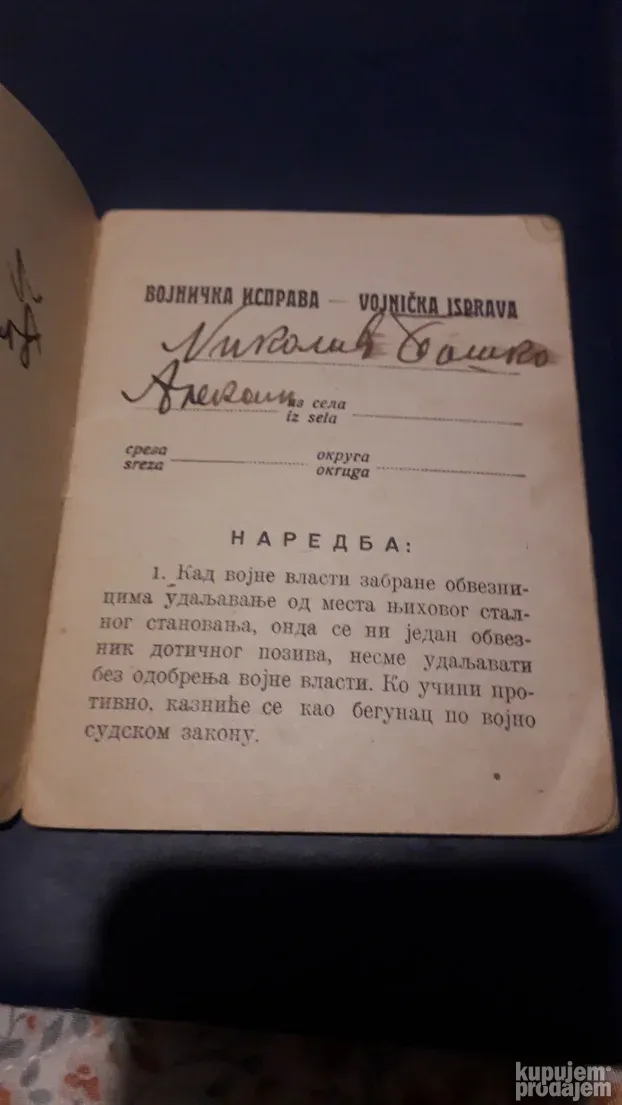 ВОЈНИЧКА ИСПРАВА — VOJNIČKA ISPRAVA
Николић Бошко
из села
iz sela
среза
sreza
округа
okruga
НАРЕДБА:
1. Кад војне власти забране обвезни-
цима удаљавање од места њиховог стал-
ног становања, онда се ни један обвез-
ник дотичног позива, несме удаљавати
без одобрења војне власти. Ко учини про-
тивно, казниће се као бегунац по војно
судском закону.
kupujem
prodajem